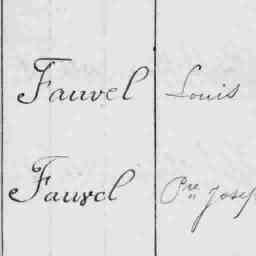 Fauvel Louis
Fauvel Pre Josep